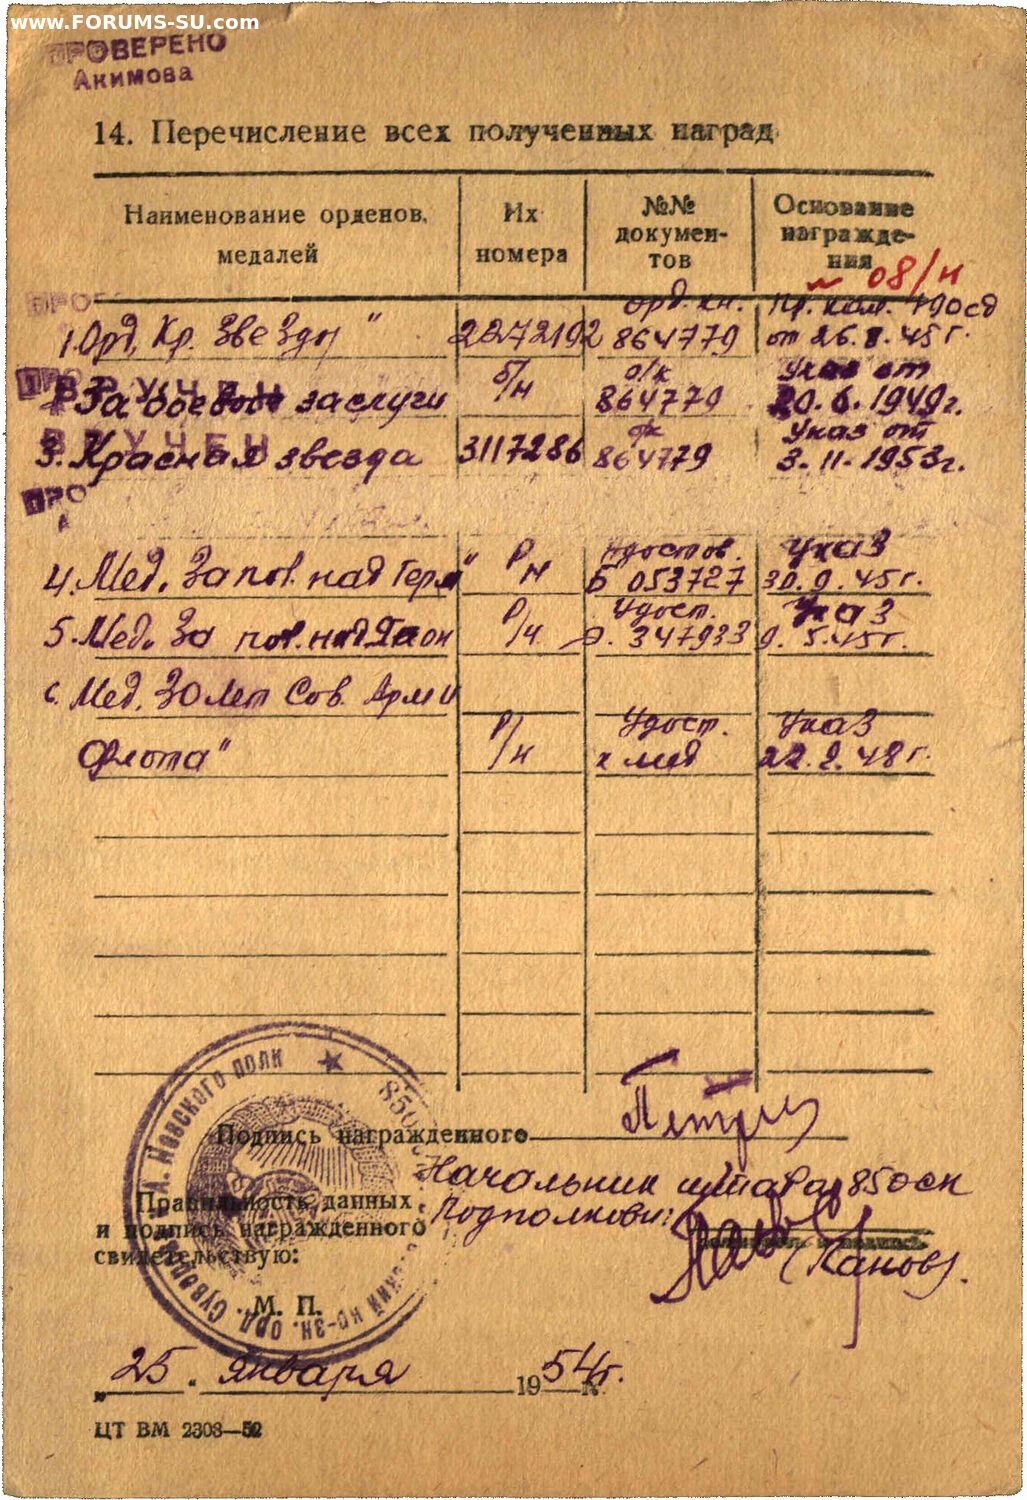 www.FORUMS-SU.com
ПРОВЕРЕНО
Акимова
14. Перечисление всех полученных наград
Наименование орденов, медалей
Их номера
№№ докумен-тов
Основание награжде-ния
№ 08/н
орд. кн. Пр. ком. 190сд
1. Орд. Кр. Звезды" 2272192 864779 от 26.8.45г.
ВРУЧЕН
б/н о/к Указ от
За боевые заслуги 864779 20.6.1949г.
ВРУЧЕН
о/к Указ от
3. Красная звезда 3117286 864779 3.11.1953г.
ПРО
Удостов. Указ
4. Мед. За поб. над Герм" Б 053727 30.9.45г.
Удост. Указ
5. Мед. За поб. над Япон 347933 9.5.45г.
6. Мед. 30 лет Сов. Арми
Удост. Указ
Флота" к мед 22.2.48г.
Подпись награжденного
Начальник штаба 850сп
Правильность данных
и подпись награжденного
свидетельствую:
Подполковник
(Канов).
М. П.
„25" Января 1954г.
ЦТ ВМ 2303—52